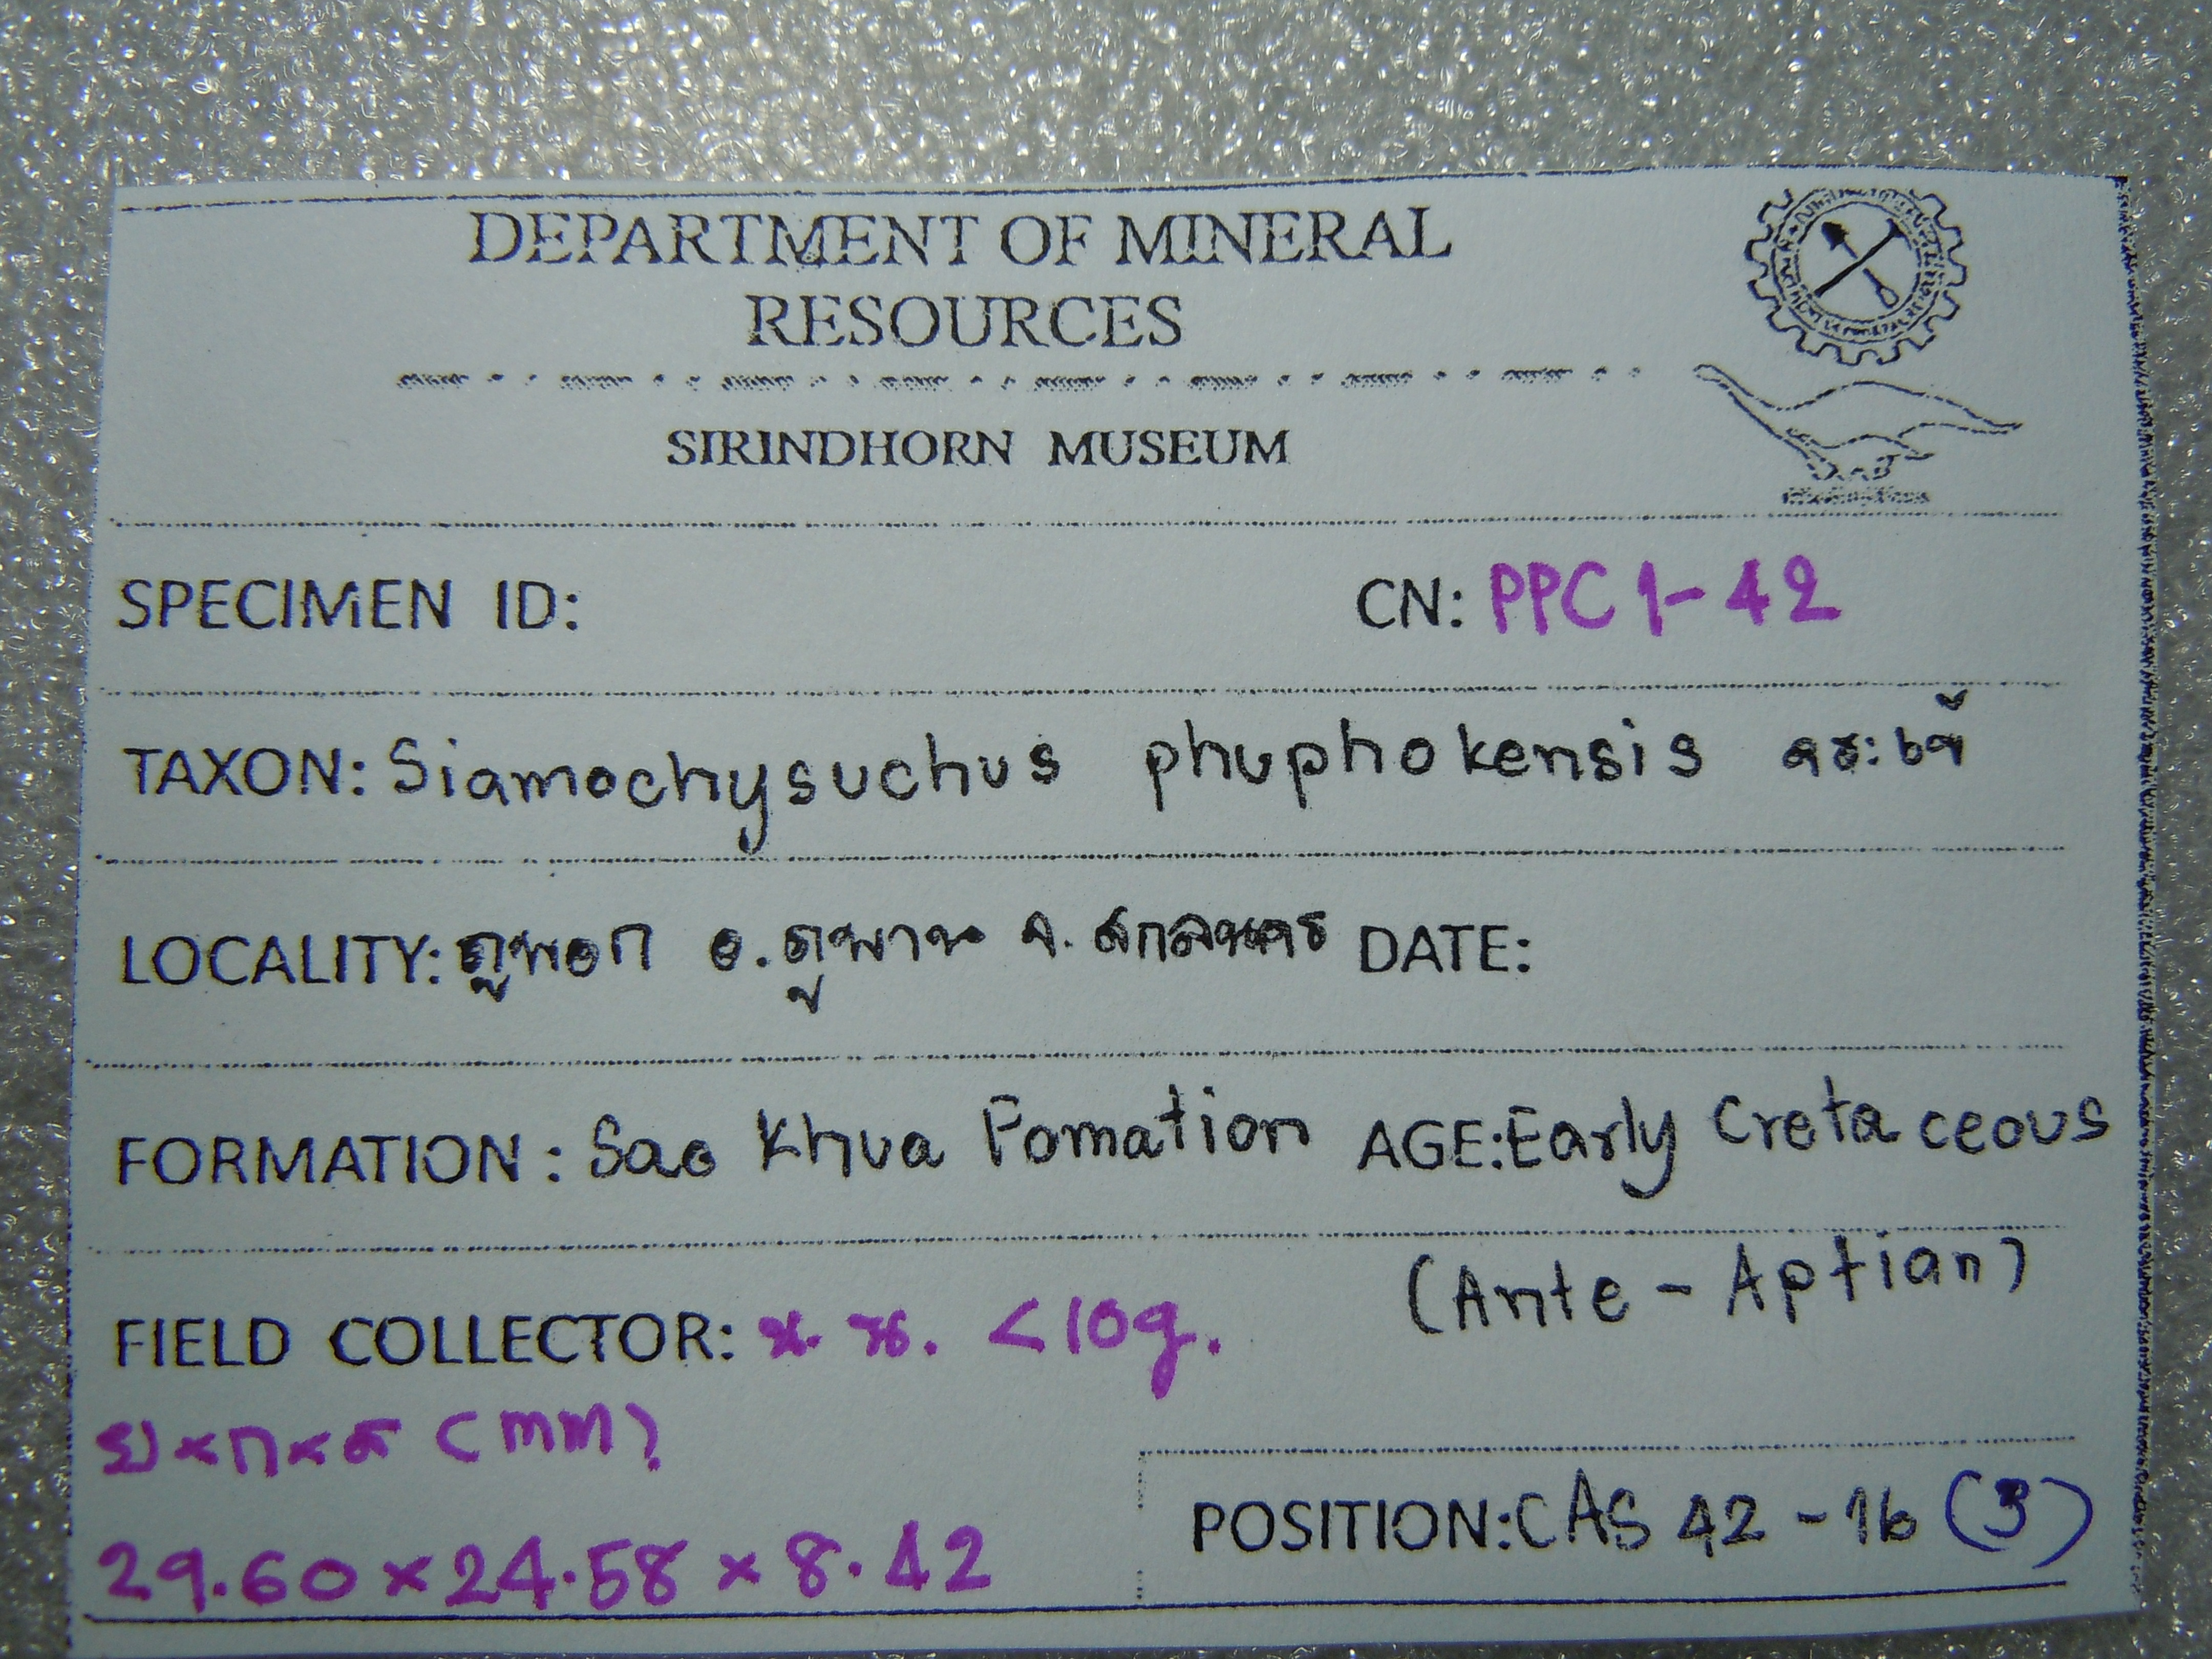 DEPARTMENT OF MINERAL
RESOURCES
SIRINDHORN MUSEUM
SPECIMEN ID: CN: PPC 1-42
TAXON: Siamochysuchus phuphokensis จระเข้
LOCALITY: ภูพอก อ.ภูพาน จ.สกลนคร DATE:
FORMATION : Sao Khua Fomation AGE: Early Cretaceous
(Ante - Aptian)
FIELD COLLECTOR: น.น. <10g.
ย×ก×ส (mm)
29.60 × 24.58 × 8.42
POSITION: CAS 42 - 16 (3)